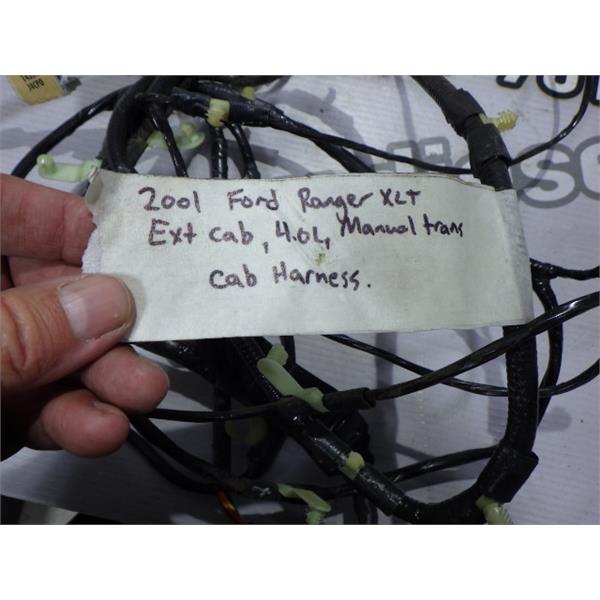 2001 Ford Ranger XLT
Ext cab, 4.0L, Manual trans
cab Harness.